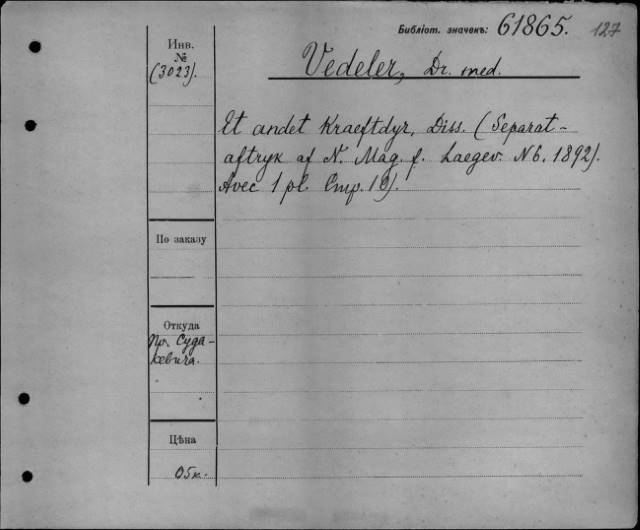 Библіот. значекъ: 61865. 127
Инв.
№
(3023).
Vedeler, Dr. med.
Et andet Kraeftdyr, Diss. (Separat-
aftryk af N. Mag. f. Laegev. N 6. 1892).
Avec 1 pl. Стр. 19).
По заказу
Откуда
Пр. Суда-
кевича.
Цѣна
05к.